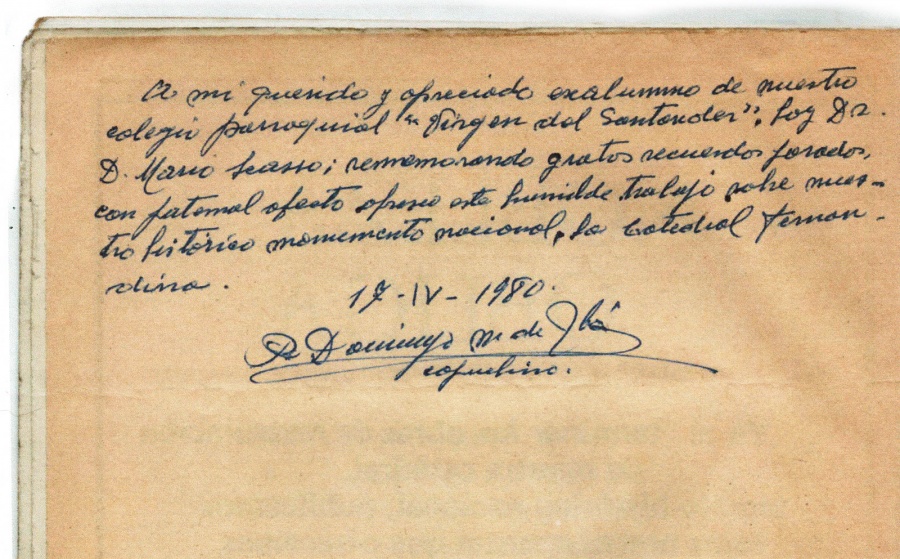 A mi querido y apreciado exalumno de nuestro
colegio parroquial "Virgen del Santander", hoy Dr.
D. Mario Scasso; rememorando gratos recuerdos pasados,
con paternal afecto ofrece este humilde trabajo sobre nues-
tro histórico monumento nacional, la Catedral Fernan-
dina.
17-IV-1980.
P. Domingo M. de
capuchino.